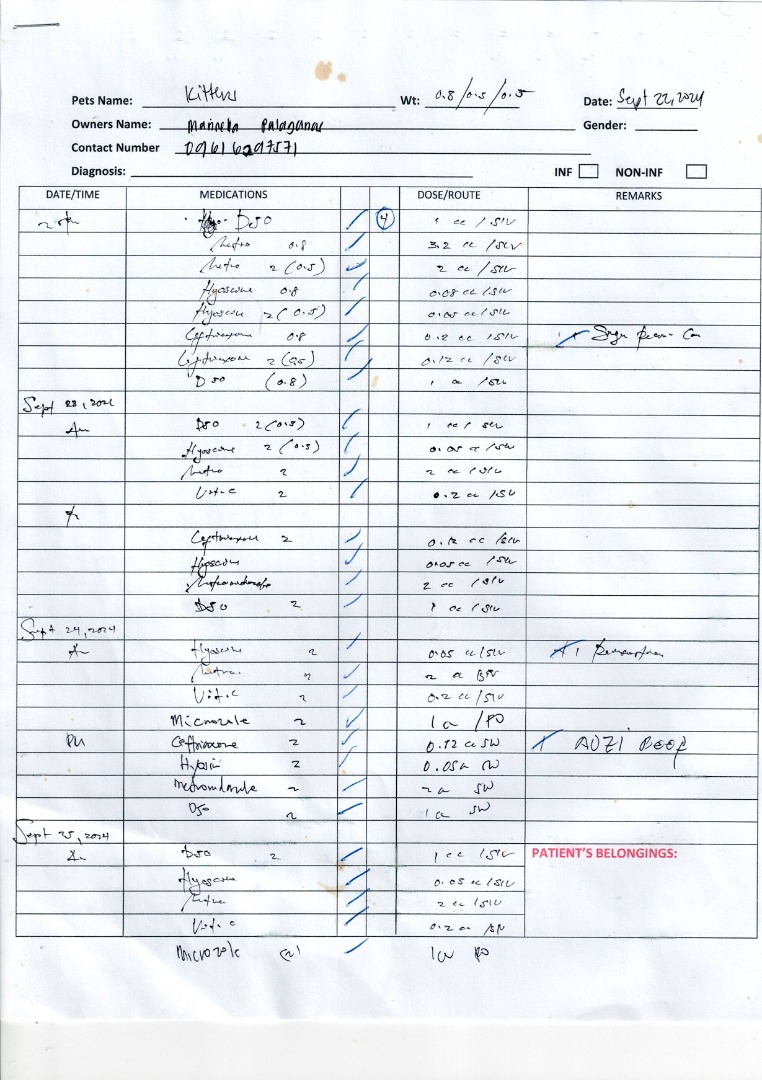 Pets Name: Kittens Wt: 0.8/0.5/0.5 Date: Sept 22, 2024
Owners Name: Palaganas Gender:
Contact Number
Diagnosis: INF NON-INF
DATE/TIME MEDICATIONS DOSE/ROUTE REMARKS
D50 4 1 cc / SIV
Metro 0.8 3.2 cc /SIV
Metro 2 (0.5) 2 cc /SIV
Hyoscine 0.8 0.08 cc /SIV
Hyoscine 2 (0.5) 0.05 cc /SIV
Ceftriaxone 0.8 0.2 cc /SIV
Ceftriaxone 2 (0.5) 0.12 cc /SIV
D50 (0.8) 1 cc /SIV
Sept 23, 2024
Am D50 2 (0.5) 1 cc / SIV
Hyoscine 2 (0.5) 0.05 cc /SIV
Metro 2 2 cc /SIV
Vit. C 2 0.2 cc /SIV
Ceftriaxone 2 0.12 cc /SIV
Hyoscine 0.05 cc /SIV
Metronidazole 2 cc /SIV
D50 2 1 cc /SIV
Sept 24, 2024
Am Hyoscine 2 0.05 cc/SIV
Metro. 2 2 cc
Vit. C 2 0.2 cc /SIV
Microzole 2 1cc /PO
PM Ceftriaxone 2 0.12 cc SIV AOZI BEEF
2 0.05cc SIV
Metronidazole 2 2cc SIV
D50 2 1cc SIV
Sept 25, 2024
Am D50 2 1 cc /SIV PATIENT'S BELONGINGS:
Hyoscine 0.05 cc /SIV
Metro 2 cc /SIV
Vit. C 0.2 cc
Microzole (2) 1cc PO